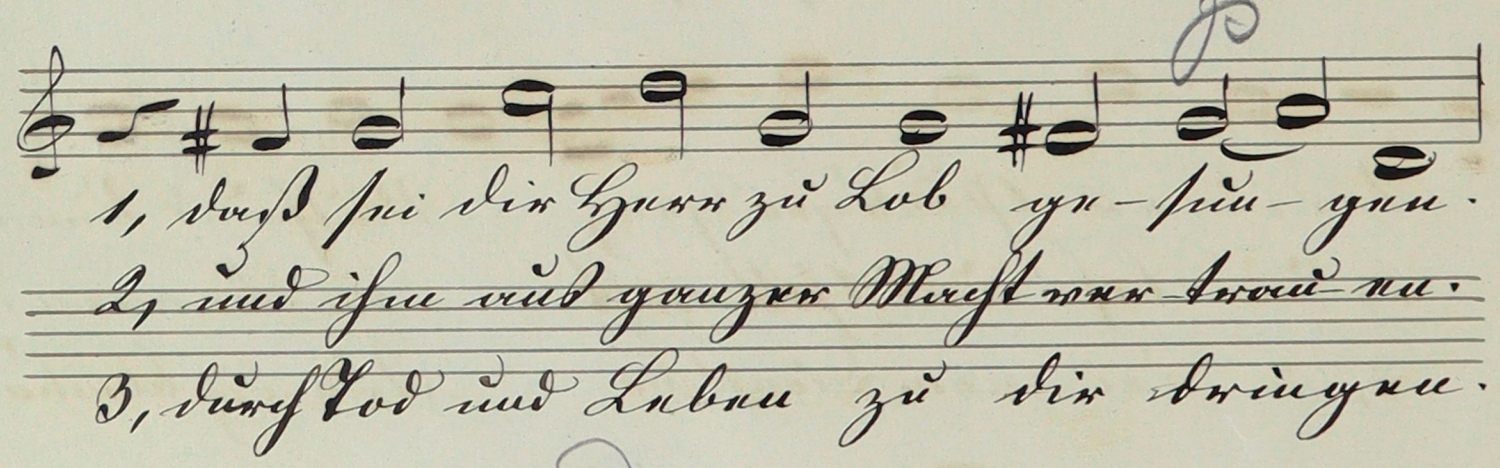 1, daß sei dir Herr zu Lob ge-sun-gen.
2, und ihm aus ganzer Macht ver-trau-en.
3, durch Tod und Leben zu dir dringen.